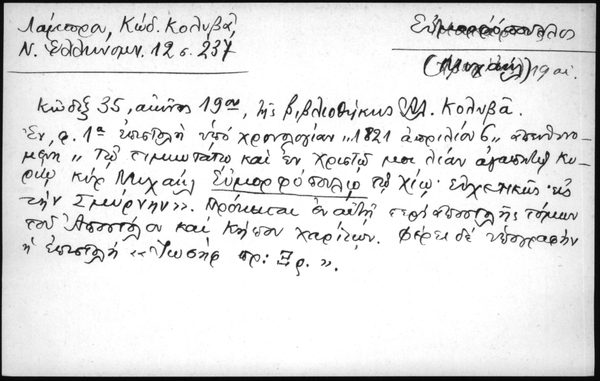 Λάμπρου, Κώδ. Κολυβᾶ,
Ν. Ἑλληνομν. 12 σ. 237
Εὐμορφόπουλος
(Μιχαήλ) 19 αἰ.
Κῶδιξ 35, αἰῶνος 19ου, τῆς βιβλιοθήκης Μ. Κολυβᾶ.
Ἐν φ. 1α ἐπιστολὴ ὑπὸ χρονολογίαν "1821 ἀπριλίου 6" ἀπευθυνο-
μένη "Τῷ τιμιωτάτῳ καὶ ἐν Χριστῷ μοι λίαν ἀγαπητῷ Κυ-
ρίῳ κὺρ Μιχαὴλ Εὐμορφοπούλῳ τῷ Χίῳ εὐχετικῶς εἰς
τὴν Σμύρνην". Πρόκειται ἐν αὐτῇ περὶ ἀποστολῆς τόμων
τοῦ Ἀποστόλου καὶ Κήπου χαρίτων. Φέρει δὲ ὑπογραφὴν
ἡ ἐπιστολὴ "Ἰωσὴφ πρ: Ξρ.".